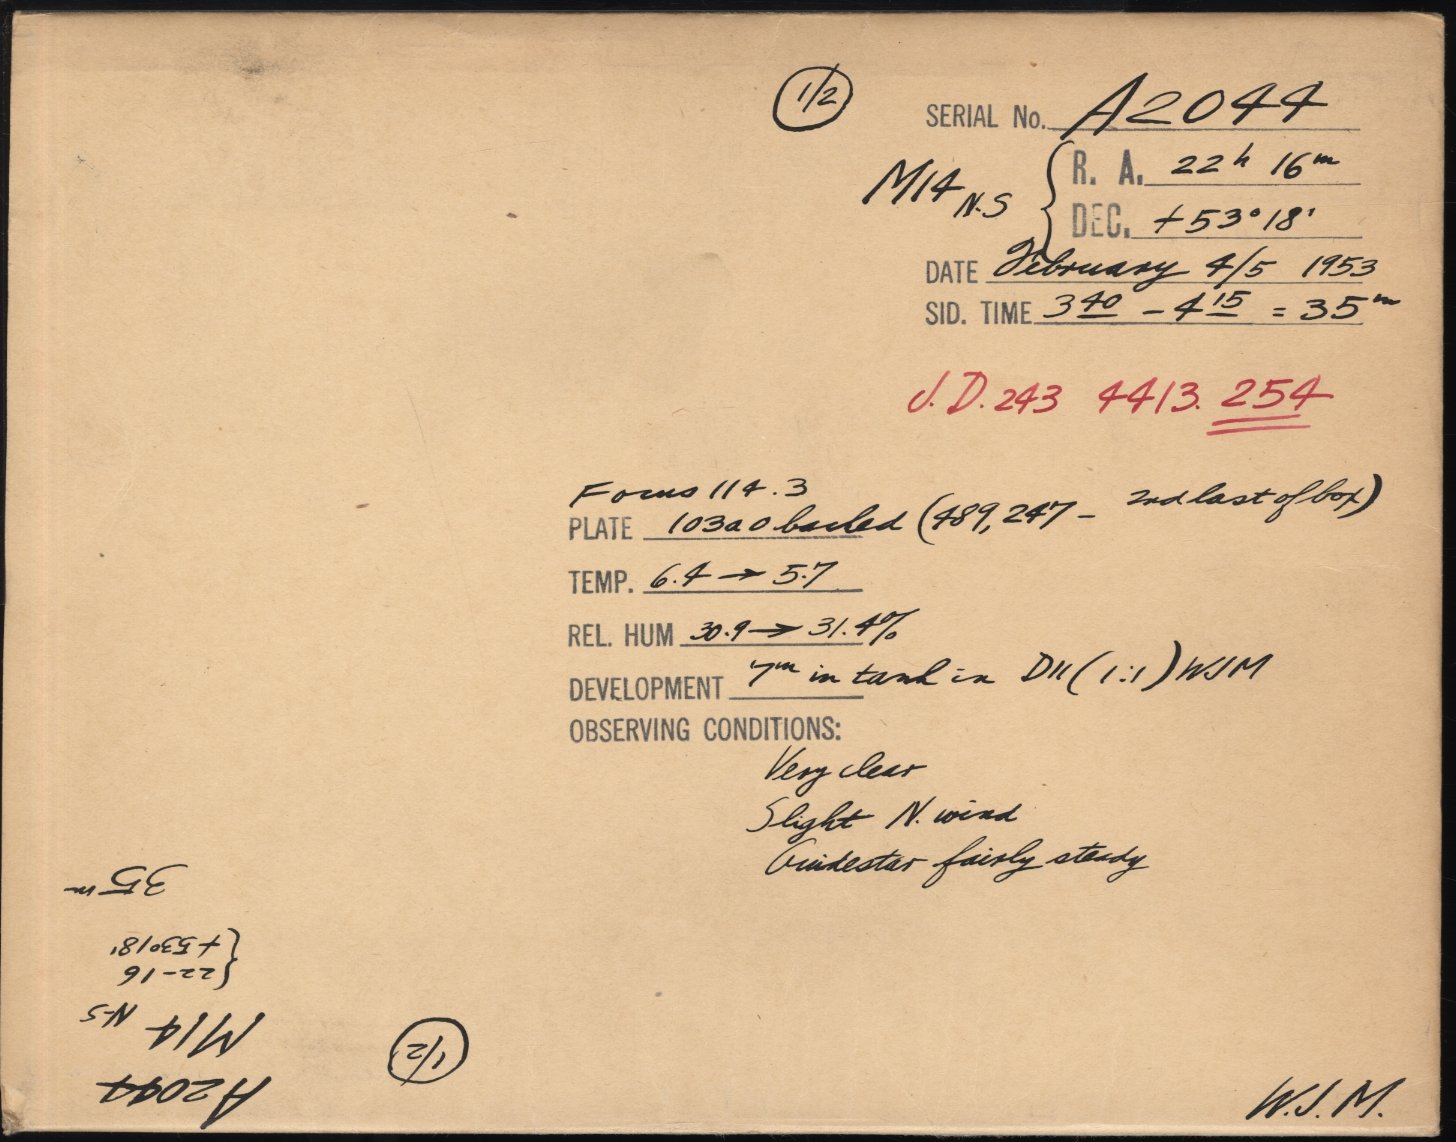 1/2
SERIAL No. A2044
M14 N-S { R. A. 22h 16m
DEC. +53°18'
DATE February 4/5 1953
SID. TIME 3 40 – 4 15 = 35m
J.D. 243 4413.254
Focus 114.3
PLATE 103a0 backed (489,247 – 2nd last of box)
TEMP. 6.4 → 5.7
REL. HUM 30.9 → 31.4%
DEVELOPMENT 7m in tank in D11 (1:1) WJM
OBSERVING CONDITIONS:
Very clear
Slight N. wind
Guidestar fairly steady
W.J.M.
1/2
A2044
M14 N-S
{ 22-16
+53°18'
35m